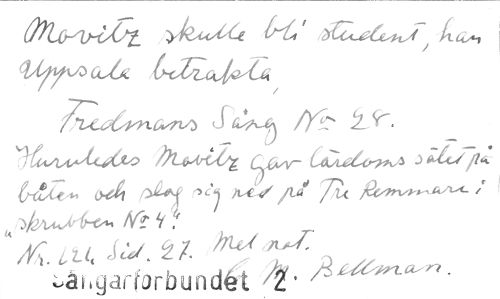 Movitz skulle bli student, han
Uppsala betrakta,
Fredmans Sång No 28.
Hurruledes Movitz gav lärdoms sätet på
båten och slog sig ned på Tre Remmare i
"skrubben No 4".
Nr. 121, Sid. 27. Med not.
C. M. Bellman.
Sångarförbundet 2.